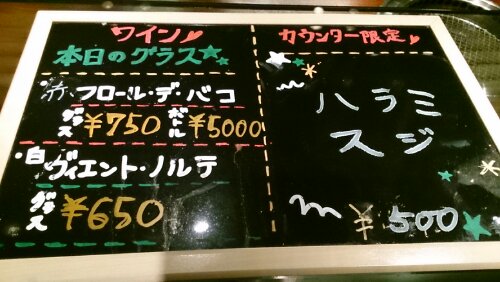 ワイン
本日のグラス
・赤 フロール・デ・パコ
グラス ¥750 ボトル ¥5000
・白 ヴィエント・ノルテ
グラス ¥650
カウンター限定
ハラミ
スジ
¥500